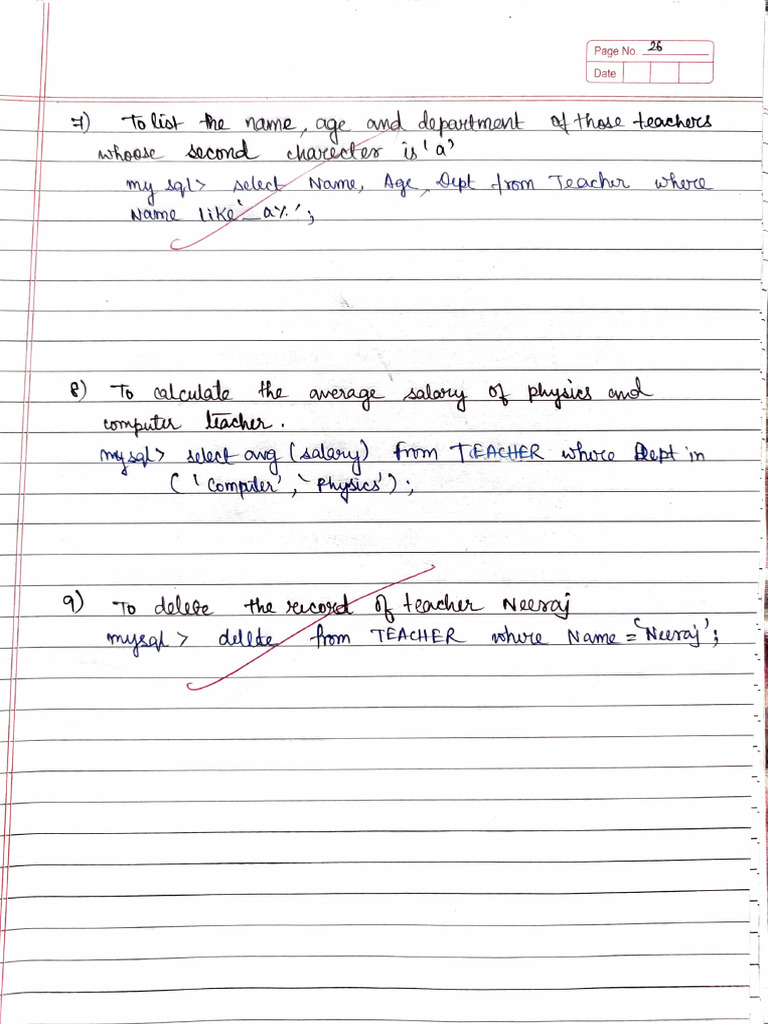 Page No. 26
Date
7) To list the name, age and department of those teachers
whoose second charecter is 'a'
my sql> select Name, Age, Dept from Teacher where
Name like '_a%';
8) To calculate the average salary of physics and
computer teacher.
mysql> select avg (salary) from TEACHER where Dept in
('Computer', 'Physics');
9) To delete the record of teacher Neeraj
mysql> delete from TEACHER where Name = 'Neeraj';